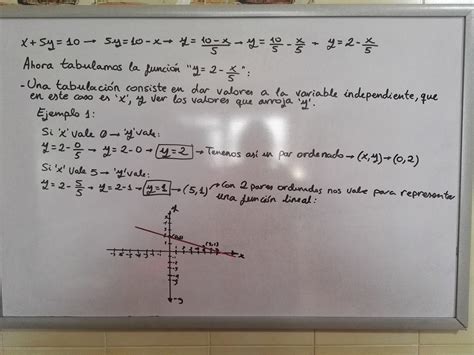 x + 5y = 10 → 5y = 10 - x → y = \frac{10-x}{5} → y = \frac{10}{5} - \frac{x}{5} → y = 2 - \frac{x}{5}
Ahora tabulamos la función "y = 2 - \frac{x}{5}":
- Una tabulación consiste en dar valores a la variable independiente, que
en este caso es 'x', y ver los valores que arroja 'y'.
Ejemplo 1:
Si 'x' vale 0 → 'y' vale:
y = 2 - \frac{0}{5} → y = 2 - 0 → y = 2 → Tenemos así un par ordenado → (x,y) → (0,2)
Si 'x' vale 5 → 'y' vale:
y = 2 - \frac{5}{5} → y = 2 - 1 → y = 1 → (5,1) → Con 2 pares ordenados nos vale para representar
una función lineal:
y
(0,2)
(5,1)
-x
x
-y